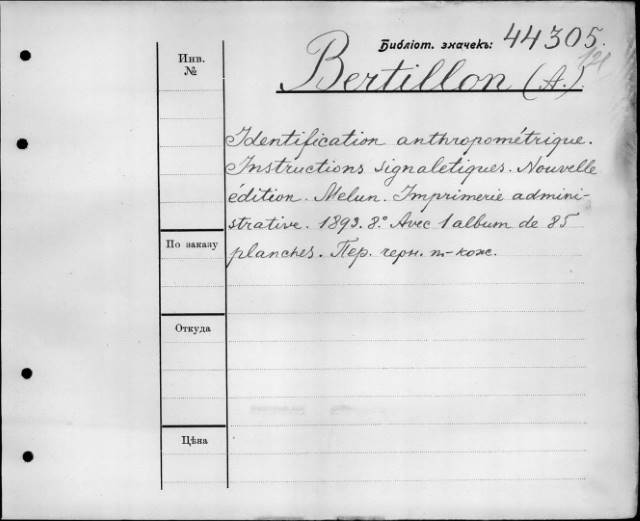 Библіот. значекъ: 44305.
121
Инв.
№
Bertillon (A.).
Identification anthropométrique.
Instructions signaletiques. Nouvelle
édition. Melun. Imprimerie admini-
strative. 1893. 8.° Avec 1 album de 85
planches. Пер. черн. п-кож.
По заказу
Откуда
Цѣна